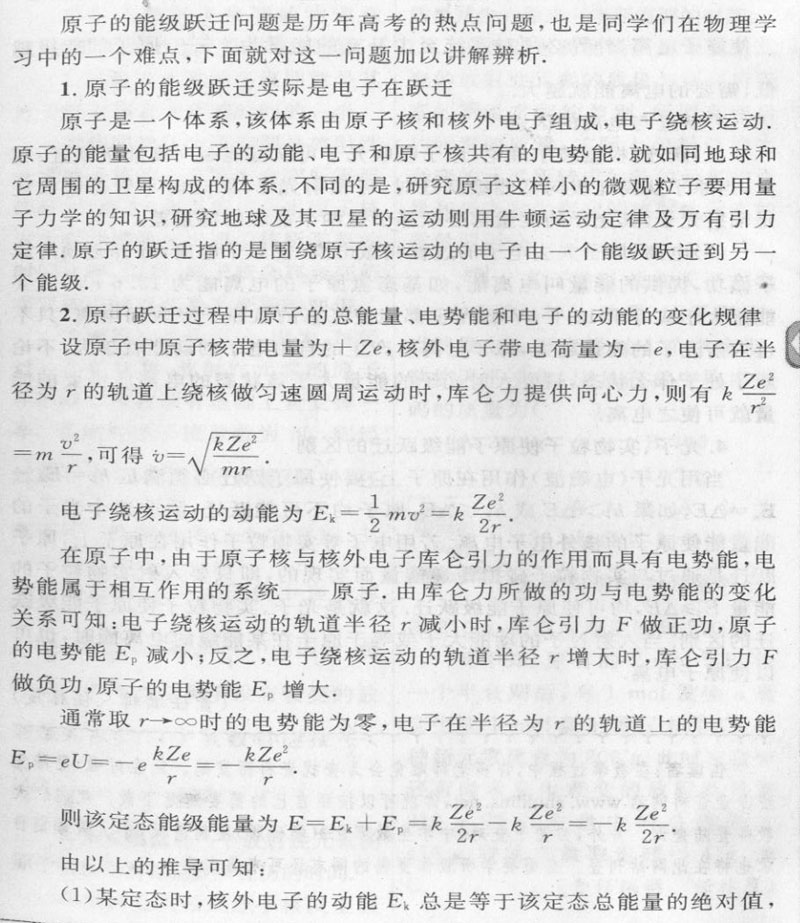 原子的能级跃迁问题是历年高考的热点问题,也是同学们在物理学
习中的一个难点,下面就对这一问题加以讲解辨析.
1. 原子的能级跃迁实际是电子在跃迁
原子是一个体系,该体系由原子核和核外电子组成,电子绕核运动.
原子的能量包括电子的动能、电子和原子核共有的电势能.就如同地球和
它周围的卫星构成的体系.不同的是,研究原子这样小的微观粒子要用量
子力学的知识,研究地球及其卫星的运动则用牛顿运动定律及万有引力
定律.原子的跃迁指的是围绕原子核运动的电子由一个能级跃迁到另一
个能级.
2. 原子跃迁过程中原子的总能量、电势能和电子的动能的变化规律
设原子中原子核带电量为+Ze,核外电子带电荷量为-e,电子在半
径为 r 的轨道上绕核做匀速圆周运动时,库仑力提供向心力,则有 k Ze²/r²
=m v²/r,可得 v=√(kZe²/mr).
电子绕核运动的动能为 Eₖ=1/2 mv²=k Ze²/2r.
在原子中,由于原子核与核外电子库仑引力的作用而具有电势能,电
势能属于相互作用的系统——原子.由库仑力所做的功与电势能的变化
关系可知:电子绕核运动的轨道半径 r 减小时,库仑引力 F 做正功,原子
的电势能 Eₚ 减小;反之,电子绕核运动的轨道半径 r 增大时,库仑引力 F
做负功,原子的电势能 Eₚ 增大.
通常取 r→∞时的电势能为零,电子在半径为 r 的轨道上的电势能
Eₚ=eU=-e kZe/r=-kZe²/r.
则该定态能级能量为 E=Eₖ+Eₚ=k Ze²/2r-k Ze²/r=-k Ze²/2r.
由以上的推导可知:
(1)某定态时,核外电子的动能 Eₖ 总是等于该定态总能量的绝对值,